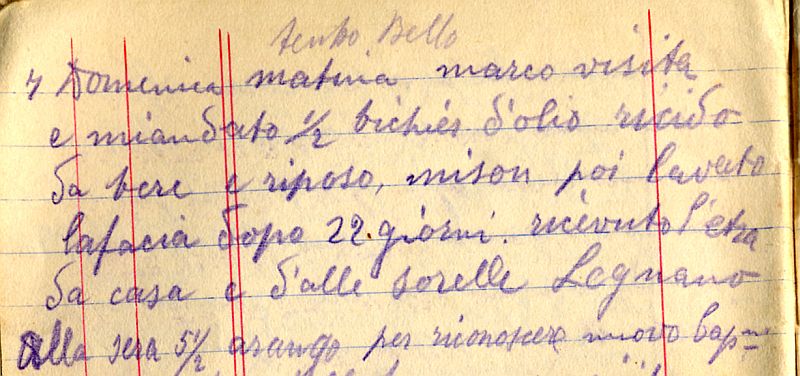 tenpo Bello
4 Domenica matina marco visita
e miandato 1/2 bichier d'olio ricido
da bere e riposo, mison poi lavato
lafacia dopo 22 giorni. ricevuto l'etra
da casa e d'alle sorelle Legnano
Alla sera 5 1/2 arango per riconoscere nuovo